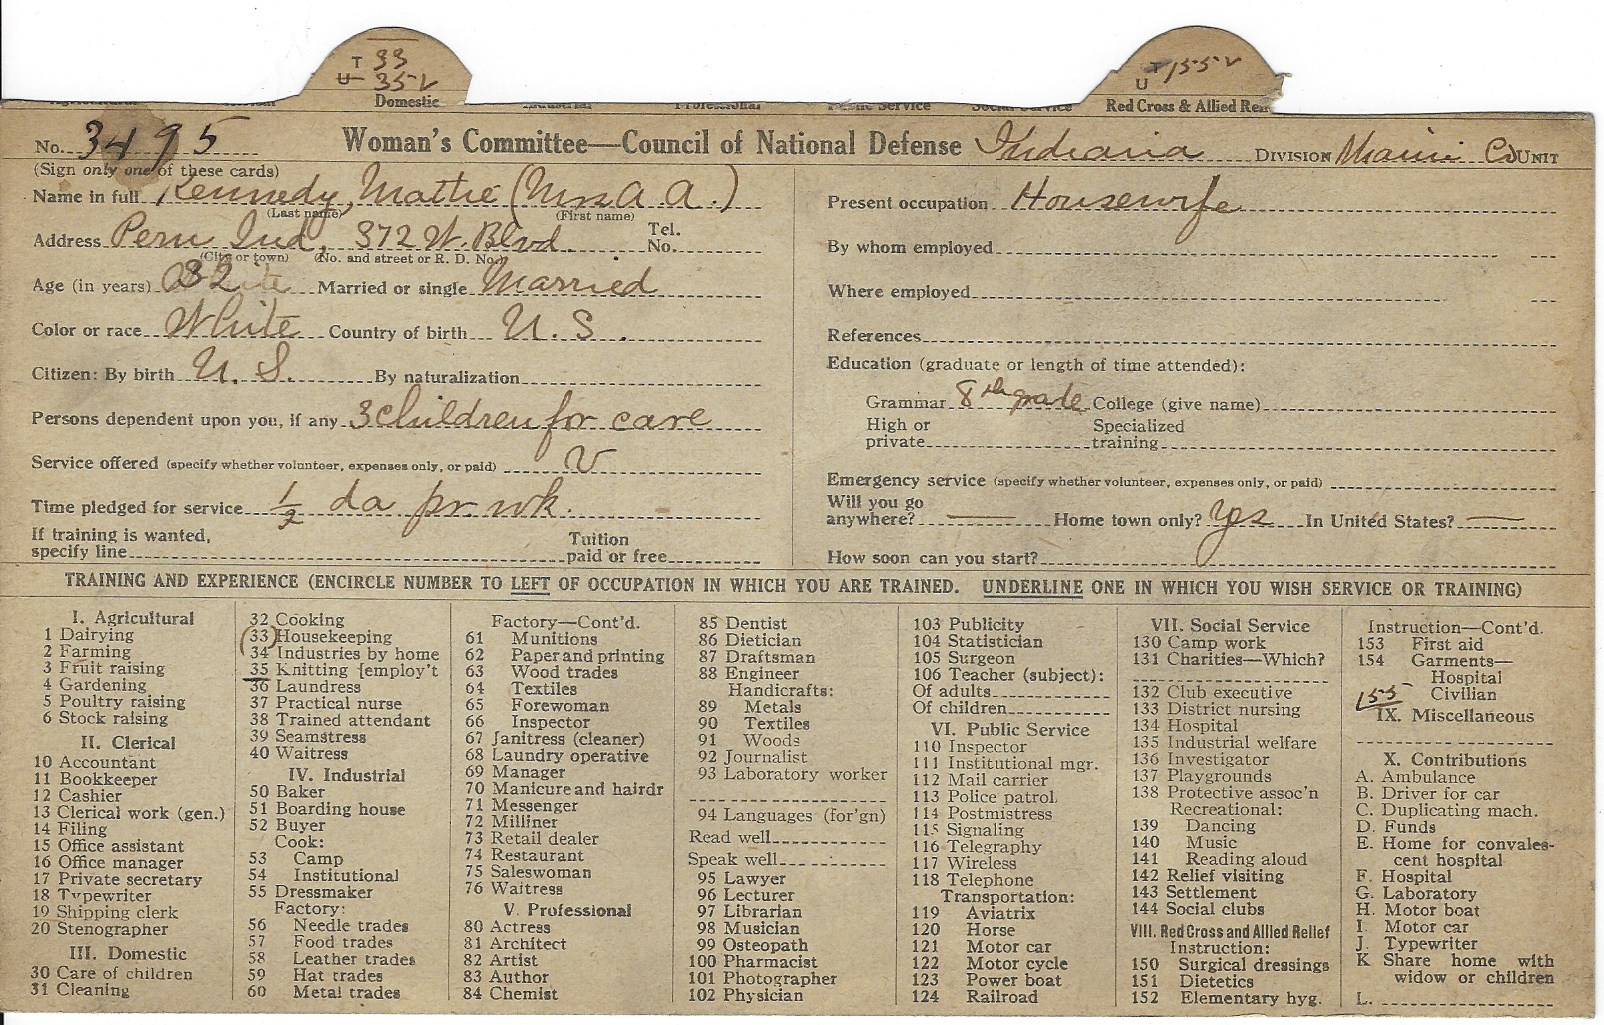 T 33
U 35 v
Domestic
T 155 v
U
Red Cross & Allied Rel
No. 3495 Woman's Committee—Council of National Defense Indiana DIVISION Miami Co UNIT
(Sign only one of these cards)
Name in full Kennedy, Mattie (Mrs A. A.)
(Last name) (First name)
Address Peru Ind, 372 W. Blvd Tel. No.
(City or town) (No. and street or R. D. No.)
Age (in years) 32 Married or single Married
Color or race White Country of birth U. S.
Citizen: By birth U. S. By naturalization
Persons dependent upon you, if any 3 children for care
Service offered (specify whether volunteer, expenses only, or paid) V
Time pledged for service 1/2 da pr. wk.
If training is wanted, specify line Tuition paid or free
Present occupation Housewife
By whom employed
Where employed
References
Education (graduate or length of time attended):
Grammar 8th grade College (give name)
High or private Specialized training
Emergency service (specify whether volunteer, expenses only, or paid)
Will you go anywhere? — Home town only? Yes In United States? —
How soon can you start?
TRAINING AND EXPERIENCE (ENCIRCLE NUMBER TO LEFT OF OCCUPATION IN WHICH YOU ARE TRAINED. UNDERLINE ONE IN WHICH YOU WISH SERVICE OR TRAINING)
I. Agricultural
1 Dairying
2 Farming
3 Fruit raising
4 Gardening
5 Poultry raising
6 Stock raising
II. Clerical
10 Accountant
11 Bookkeeper
12 Cashier
13 Clerical work (gen.)
14 Filing
15 Office assistant
16 Office manager
17 Private secretary
18 Typewriter
19 Shipping clerk
20 Stenographer
III. Domestic
30 Care of children
31 Cleaning
32 Cooking
(33) Housekeeping
34 Industries by home
35 Knitting [employ't
36 Laundress
37 Practical nurse
38 Trained attendant
39 Seamstress
40 Waitress
IV. Industrial
50 Baker
51 Boarding house
52 Buyer
Cook:
53 Camp
54 Institutional
55 Dressmaker
Factory:
56 Needle trades
57 Food trades
58 Leather trades
59 Hat trades
60 Metal trades
Factory—Cont'd.
61 Munitions
62 Paper and printing
63 Wood trades
64 Textiles
65 Forewoman
66 Inspector
67 Janitress (cleaner)
68 Laundry operative
69 Manager
70 Manicure and hairdr
71 Messenger
72 Milliner
73 Retail dealer
74 Restaurant
75 Saleswoman
76 Waitress
V. Professional
80 Actress
81 Architect
82 Artist
83 Author
84 Chemist
85 Dentist
86 Dietician
87 Draftsman
88 Engineer
Handicrafts:
89 Metals
90 Textiles
91 Woods
92 Journalist
93 Laboratory worker
94 Languages (for'gn)
Read well
Speak well
95 Lawyer
96 Lecturer
97 Librarian
98 Musician
99 Osteopath
100 Pharmacist
101 Photographer
102 Physician
103 Publicity
104 Statistician
105 Surgeon
106 Teacher (subject):
Of adults
Of children
VI. Public Service
110 Inspector
111 Institutional mgr.
112 Mail carrier
113 Police patrol
114 Postmistress
115 Signaling
116 Telegraphy
117 Wireless
118 Telephone
Transportation:
119 Aviatrix
120 Horse
121 Motor car
122 Motor cycle
123 Power boat
124 Railroad
VII. Social Service
130 Camp work
131 Charities—Which?
132 Club executive
133 District nursing
134 Hospital
135 Industrial welfare
136 Investigator
137 Playgrounds
138 Protective assoc'n
Recreational:
139 Dancing
140 Music
141 Reading aloud
142 Relief visiting
143 Settlement
144 Social clubs
VIII. Red Cross and Allied Relief
Instruction:
150 Surgical dressings
151 Dietetics
152 Elementary hyg.
Instruction—Cont'd.
153 First aid
154 Garments—
Hospital
155 Civilian
IX. Miscellaneous
X. Contributions
A. Ambulance
B. Driver for car
C. Duplicating mach.
D. Funds
E. Home for convales-
cent hospital
F. Hospital
G. Laboratory
H. Motor boat
I. Motor car
J. Typewriter
K Share home with
widow or children
L.